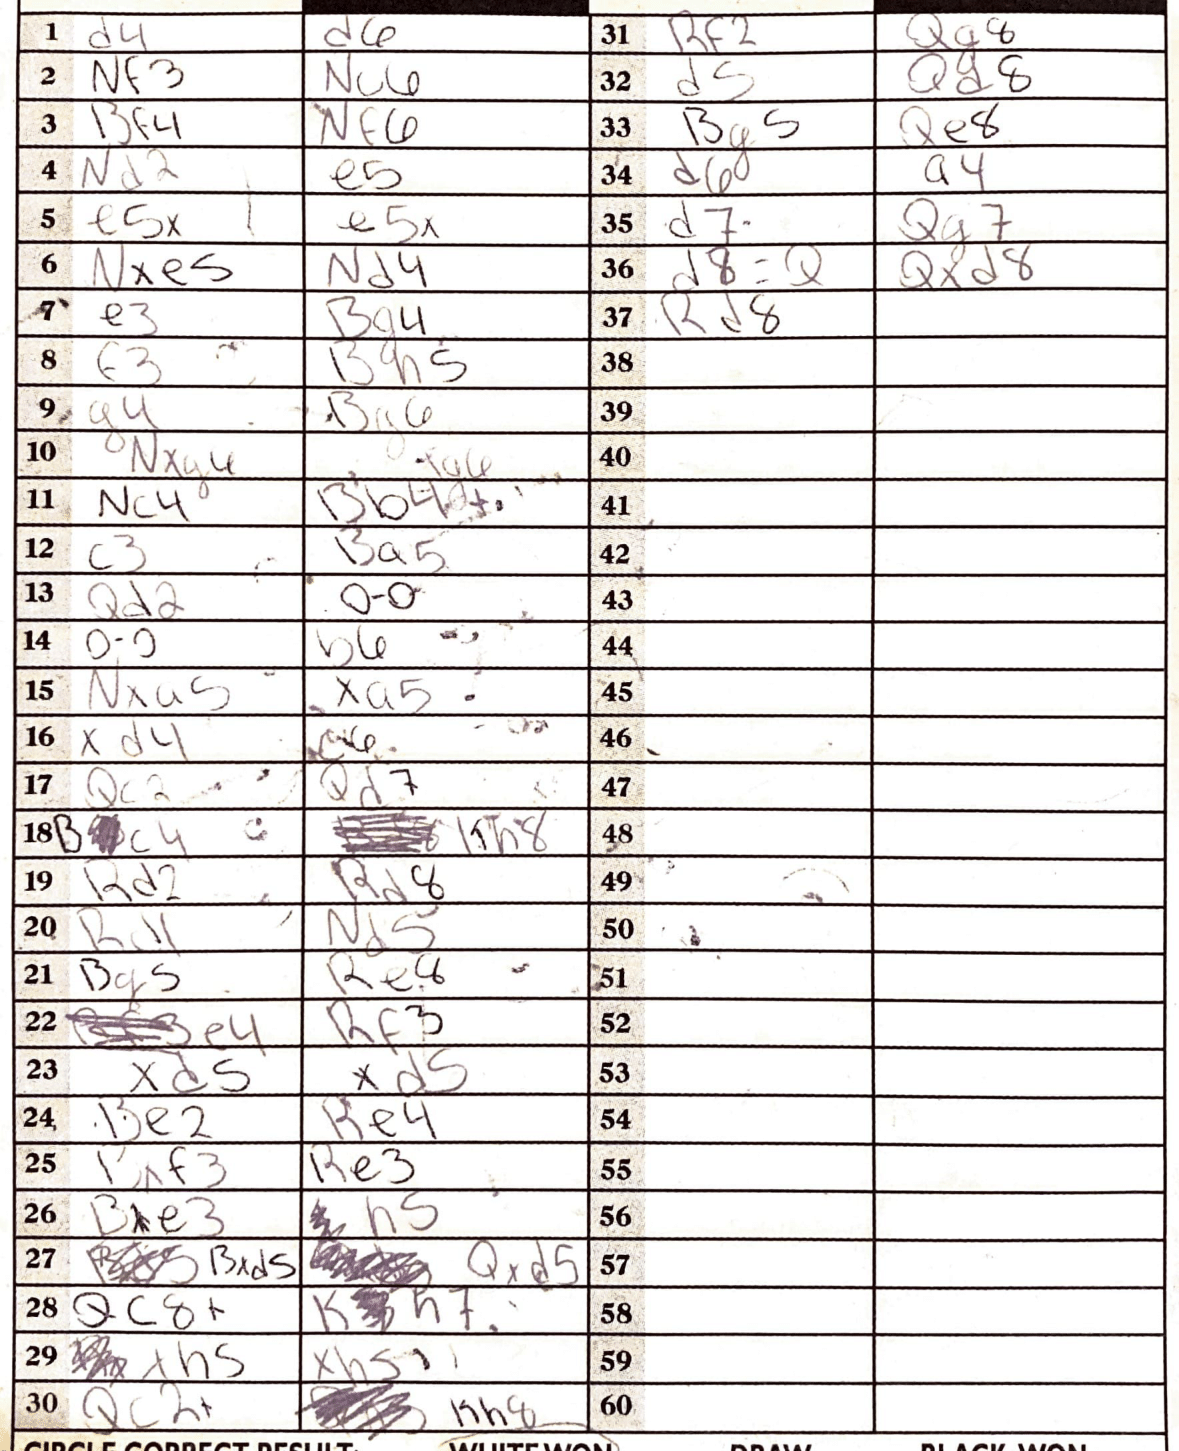 1 d4 d6 31 Rf2 Qg8
2 Nf3 Nc6 32 d5 Qd8
3 Bf4 Nf6 33 Bg5 Qe8
4 Nd2 e5 34 d6 a4
5 e5x e5x 35 d7 Qg7
6 Nxe5 Nd4 36 d8=Q Qxd8
7 e3 Bg4 37 Rd8
8 f3 Bh5 38
9 g4 Bg6 39
10 Nxg6 xg6 40
11 Nc4 Bb4+ 41
12 c3 Ba5 42
13 Qd2 0-0 43
14 0-0 b6 44
15 Nxa5 xa5 45
16 xd4 c6 46
17 Qc2 Qd7 47
18 Bc4 Kh8 48
19 Rd2 Rd8 49
20 Nd5 50
21 Bg5 Re8 51
22 e4 Rf3 52
23 xd5 xd5 53
24 Be2 Re4 54
25 f3 Re3 55
26 Bxe3 h5 56
27 Bxd5 Qxd5 57
28 Qc8+ Kh7 58
29 xh5 xh5 59
30 Qc2+ Kh8 60
CIRCLE CORRECT RESULT: WHITE WON DRAW BLACK WON